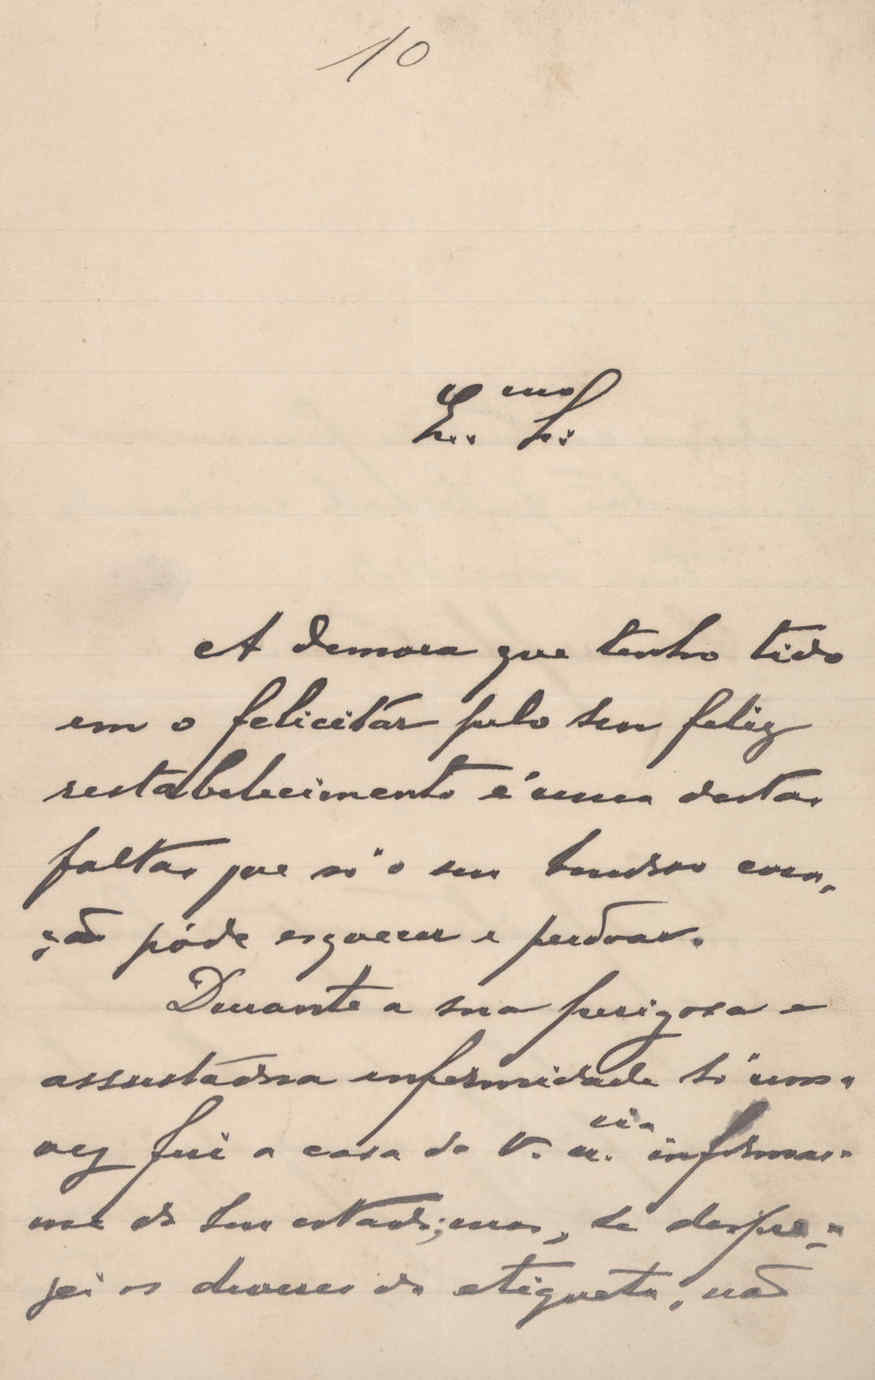 10
Ex.mo Sr.
A demora que tenho tido
em o felicitár pelo seu feliz
restabelecimento é uma destas
faltas que só o seu bondoso cora-
ção póde esquecer e perdoar.
Durante a sua perigosa e
assustadora enfermidade só uma
vez fui a casa de V. Ex.cia informar-
me do seu estado; mas, se despre-
zei os deveres da etiqueta, não